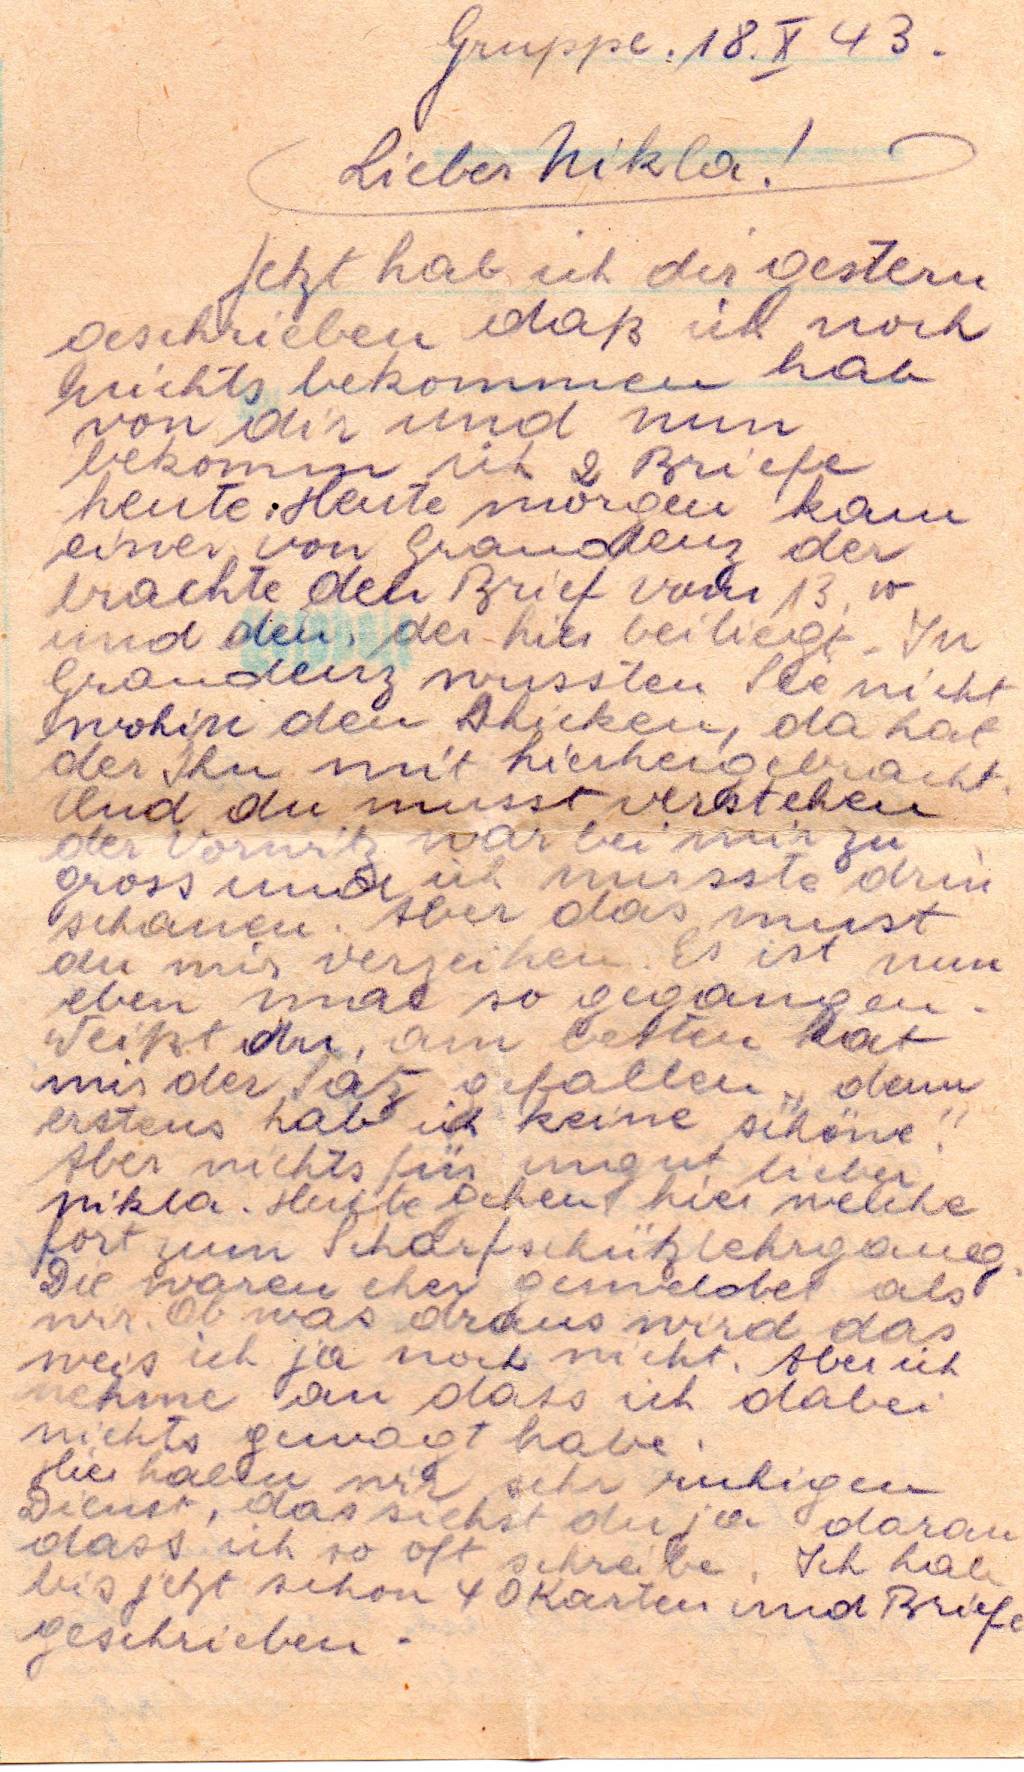 Gruppe. 18. X 43.
Lieber Nikla!
Jetzt hab ich dir gestern
geschrieben daß ich noch
nichts bekommen hab
von dir und nun
bekomm ich 2 Briefe
heute. Heute morgen kam
einer von Graudenz der
brachte den Brief vom 13.
und den, der hier beiliegt. In
Graudenz wussten Sie nicht
wohin den schicken, da hat
der Ihn mit hierhergebracht.
Und du musst verstehen
der Vorwitz war bei mir zu
gross und ich musste drin
schauen. Aber das must
du mir verzeihen. Es ist nun
eben mal so gegangen.
Weißt du, am besten hat
mir der Satz gefallen „denn
erstens hab ich keine schöne"!
Aber nichts für ungut lieber
Nikla. Heute gehen hier welche
fort zum Scharfschützlehrgang.
Die waren eher gemeldet als
wir. Ob was draus wird das
weis ich ja noch nicht. Aber ich
nehme an dass ich dabei
nichts gewagt habe.
Hier haben wir sehr ruhigen
Dienst, das siehst du ja daran
dass ich so oft schreibe. Ich hab
bis jetzt schon 40 Karten und Briefe
geschrieben.